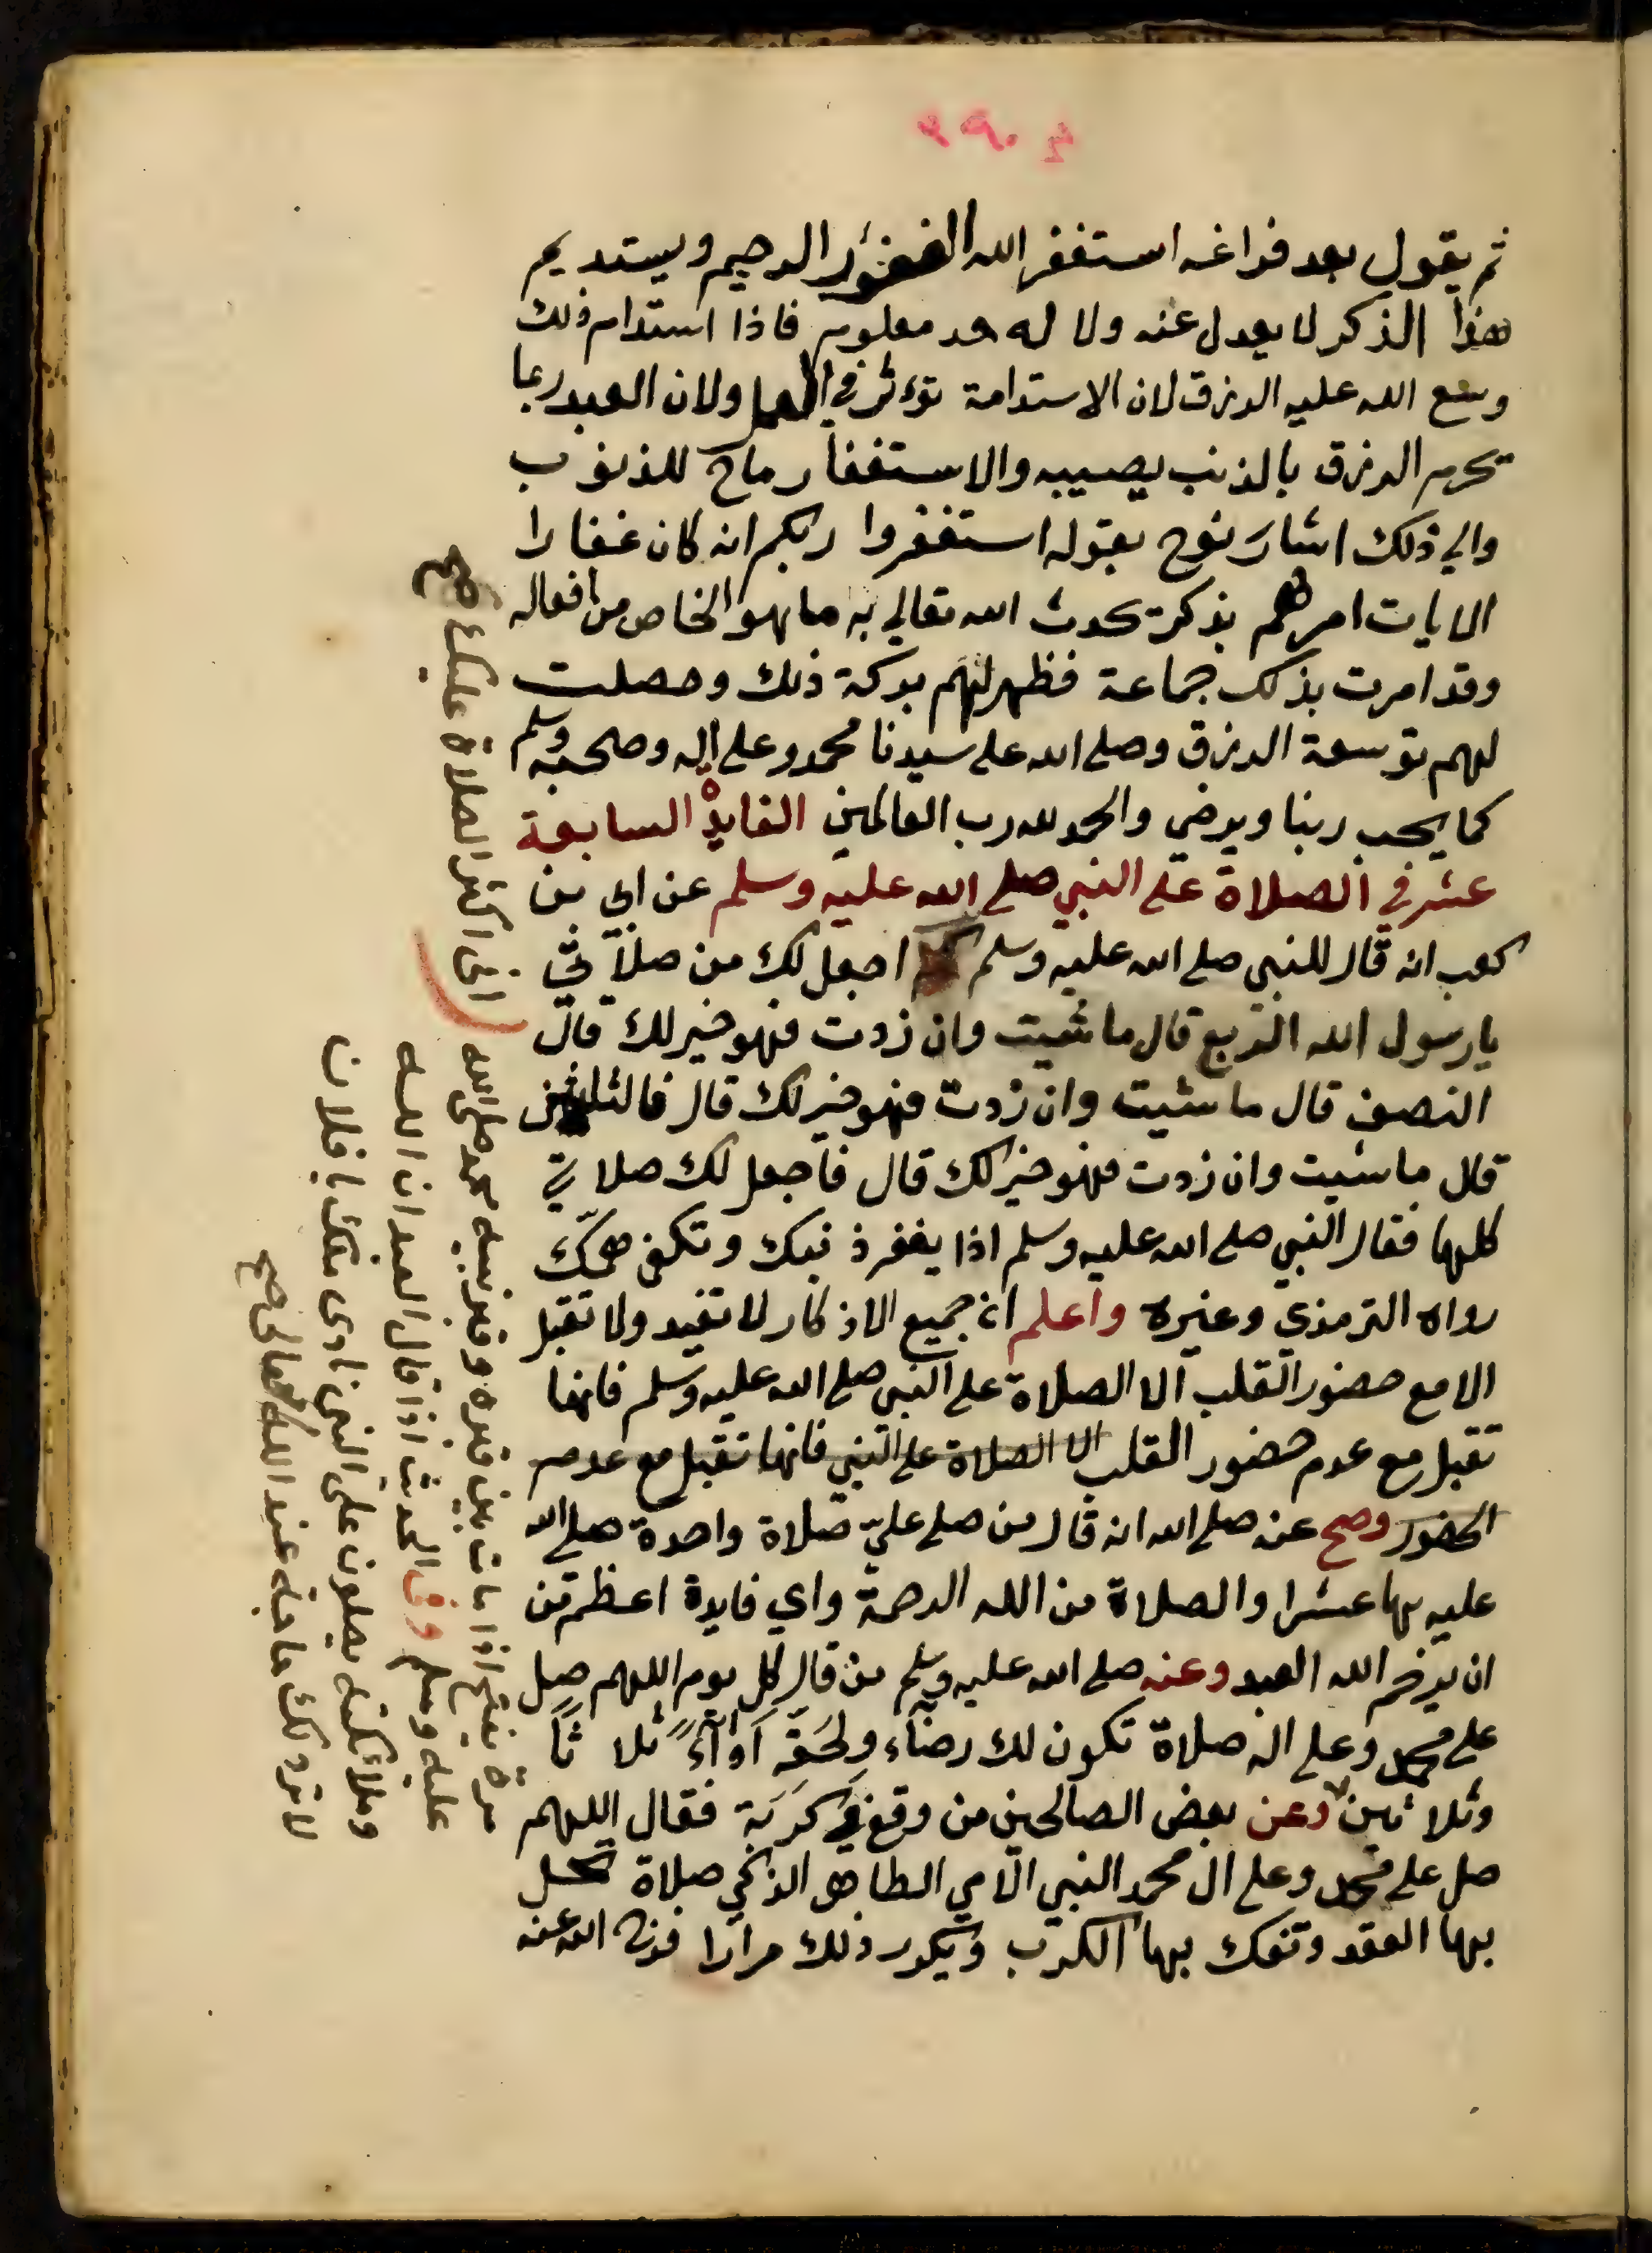 ثم يقول بعد فراغه استغفر الله الغفور الرحيم ويستديم
هذا الذكر لا يعدل عنه ولا له حد معلوم فاذا استدام ذلك
وسع الله عليه الرزق لان الاستدامة تؤثر في العمل ولان العبد ربما
يحرم الرزق بالذنب يصيبه والاستغفار ماح للذنوب
والي ذلك اشار نوح بقوله استغفروا ربكم انه كان غفارا
الايات امرهم بذكر يحدث الله تعالي به ما هو الخاص من افعاله
وقد امرت بذلك جماعة فظهر لهم بركة ذلك وحصلت
لهم توسعة الرزق وصلي الله علي سيدنا محمد وعلي اله وصحبه وسلم
كما يحب ربنا ويرضي والحمد لله رب العالمين الفايدة السابعة
عشر في الصلاة علي النبي صلي الله عليه وسلم عن ابي بن
كعب انه قال للنبي صلي الله عليه وسلم كم اجعل لك من صلاتي
يا رسول الله الربع قال ما شيت وان زدت فهو خير لك قال
النصف قال ما شيت وان زدت فهو خير لك قال فالثلثين
قال ما شيت وان زدت فهو خير لك قال فاجعل لك صلاتي
كلها فقال النبي صلي الله عليه وسلم اذا يغفر ذنبك وتكفي همك
رواه الترمذي وغيره واعلم ان جميع الاذكار لا تفيد ولا تقبل
الا مع حضور القلب الا الصلاة علي النبي صلي الله عليه وسلم فانها
تقبل مع عدم حضور القلب الا الصلاة علي النبي فانها تقبل مع عدم
الحضور وصح عن صلي الله انه قال من صلي عليّ صلاة واحدة صلي الله
عليه بها عشرا والصلاة من الله الرحمة واي فايدة اعظم من
ان يرحم الله العبد وعنه صلي الله عليه وسلم من قال كل يوم اللهم صل
علي محمد وعلي اله صلاة تكون لك رضاء ولحقه اداءً ثلاثاً
وثلاثين وعن بعض الصالحين من وقع في كربة فقال اللهم
صل علي محمد وعلي ال محمد النبي الامي الطاهر الزكي صلاة تحل
بها العقد وتفك بها الكرب ويكرر ذلك مرارا فرج الله عنه
اني اكثر الصلاة عليك صح
مرة يفتح اذا مات بين قبره وقبر نبيه محمد صلى الله
عليه وسلم وفى الحديث اذا قال العبد ان الله
وملائكته يصلون على النبى نادى ملك يا فلان
لا ترد لك حاجة عند الله تعالى صح